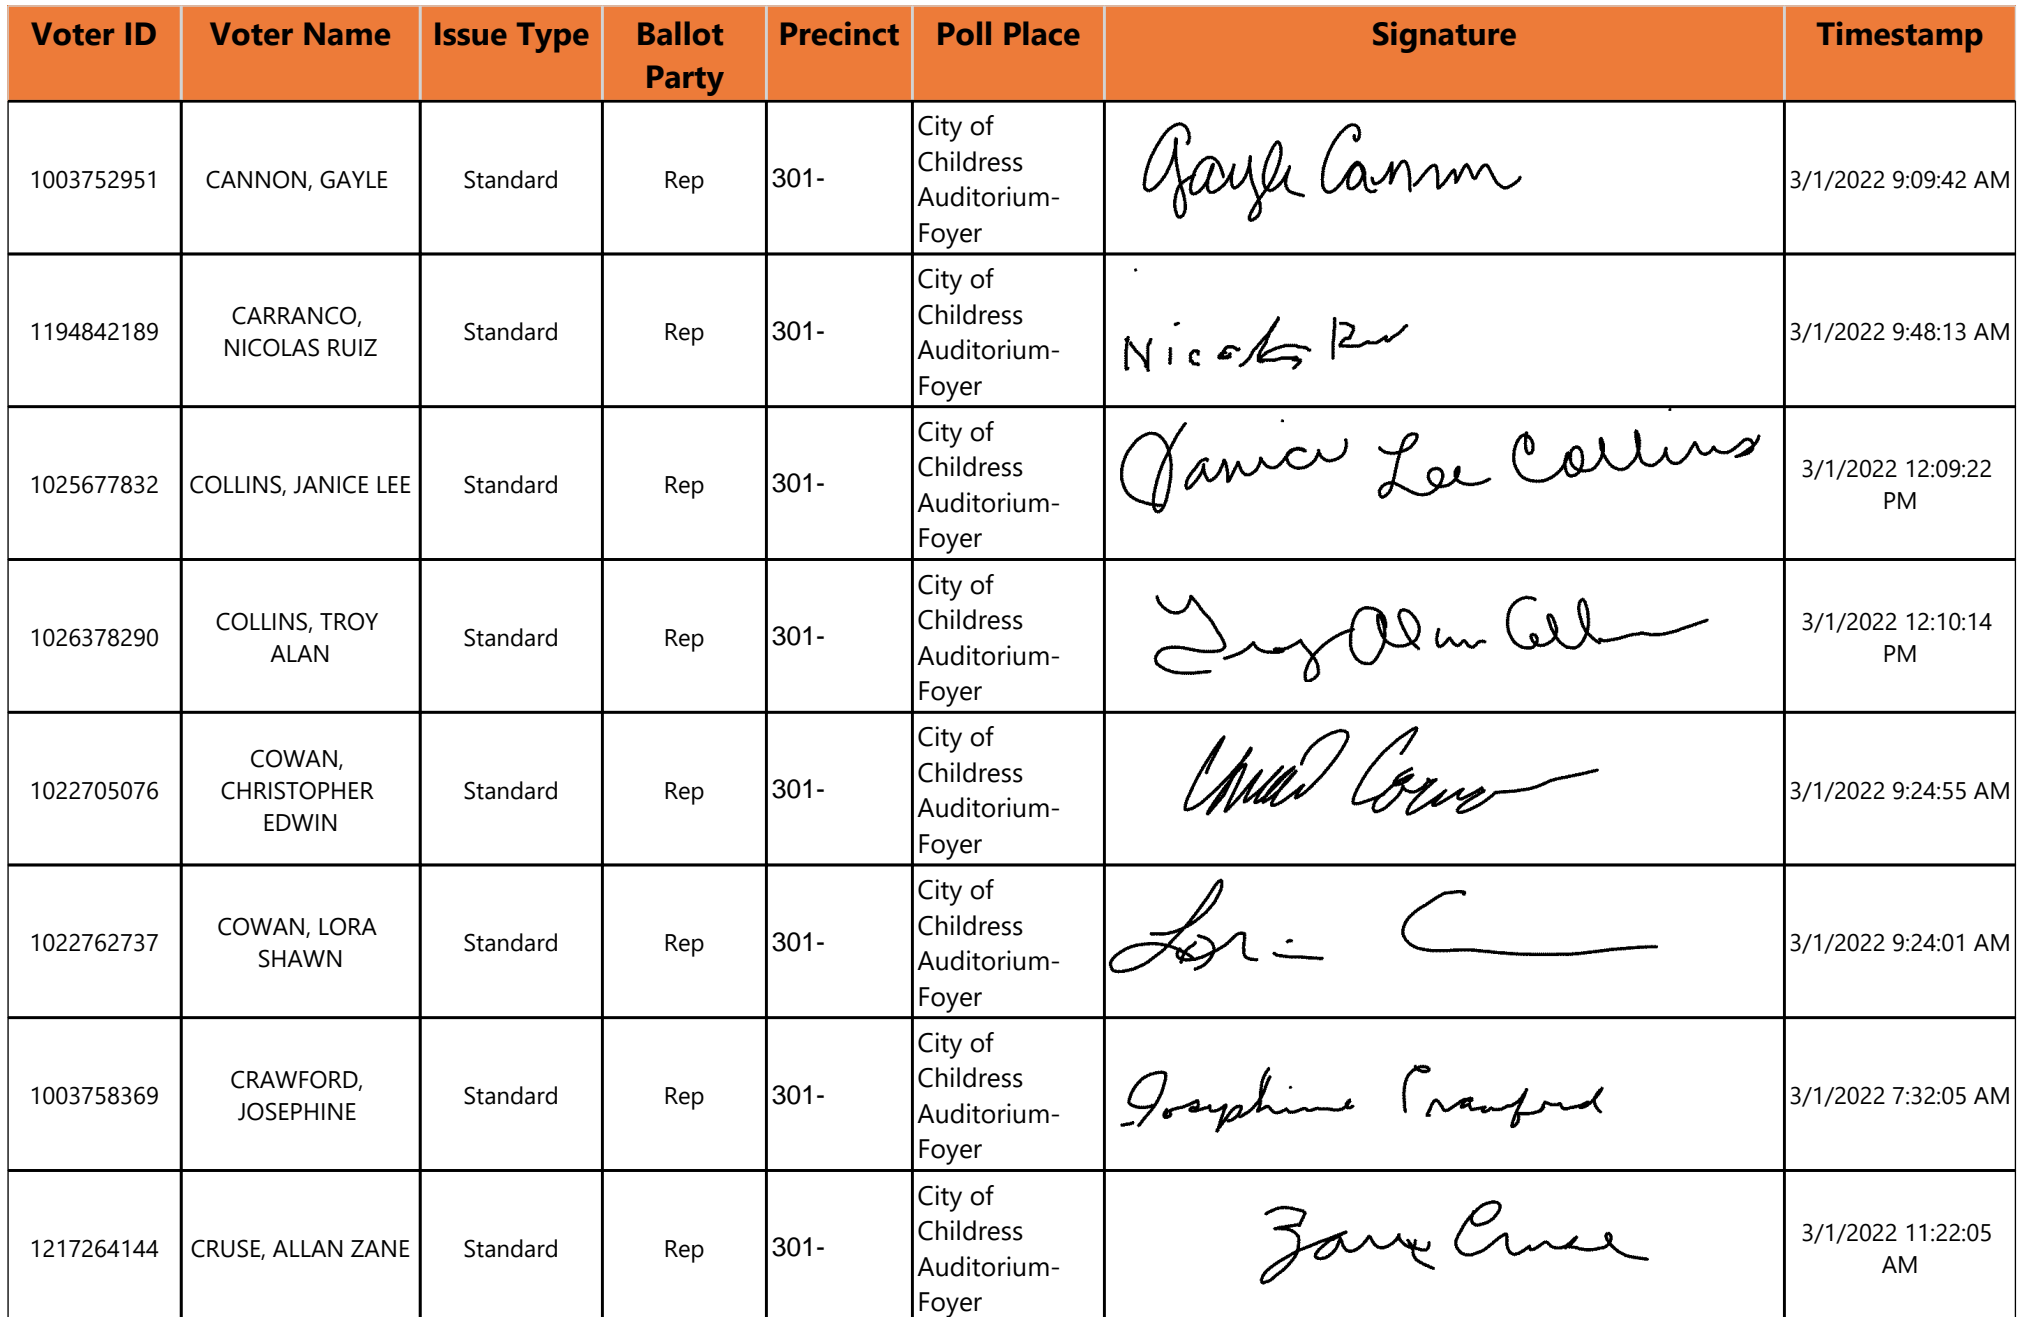 Voter ID Voter Name Issue Type Ballot Party Precinct Poll Place Signature Timestamp
1003752951 CANNON, GAYLE Standard Rep 301- City of Childress Auditorium-Foyer Gayle Cannon 3/1/2022 9:09:42 AM
1194842189 CARRANCO, NICOLAS RUIZ Standard Rep 301- City of Childress Auditorium-Foyer Nicolas 3/1/2022 9:48:13 AM
1025677832 COLLINS, JANICE LEE Standard Rep 301- City of Childress Auditorium-Foyer Janice Lee Collins 3/1/2022 12:09:22 PM
1026378290 COLLINS, TROY ALAN Standard Rep 301- City of Childress Auditorium-Foyer Troy Alan Collins 3/1/2022 12:10:14 PM
1022705076 COWAN, CHRISTOPHER EDWIN Standard Rep 301- City of Childress Auditorium-Foyer 3/1/2022 9:24:55 AM
1022762737 COWAN, LORA SHAWN Standard Rep 301- City of Childress Auditorium-Foyer 3/1/2022 9:24:01 AM
1003758369 CRAWFORD, JOSEPHINE Standard Rep 301- City of Childress Auditorium-Foyer Josephine Crawford 3/1/2022 7:32:05 AM
1217264144 CRUSE, ALLAN ZANE Standard Rep 301- City of Childress Auditorium-Foyer Zane Cruse 3/1/2022 11:22:05 AM